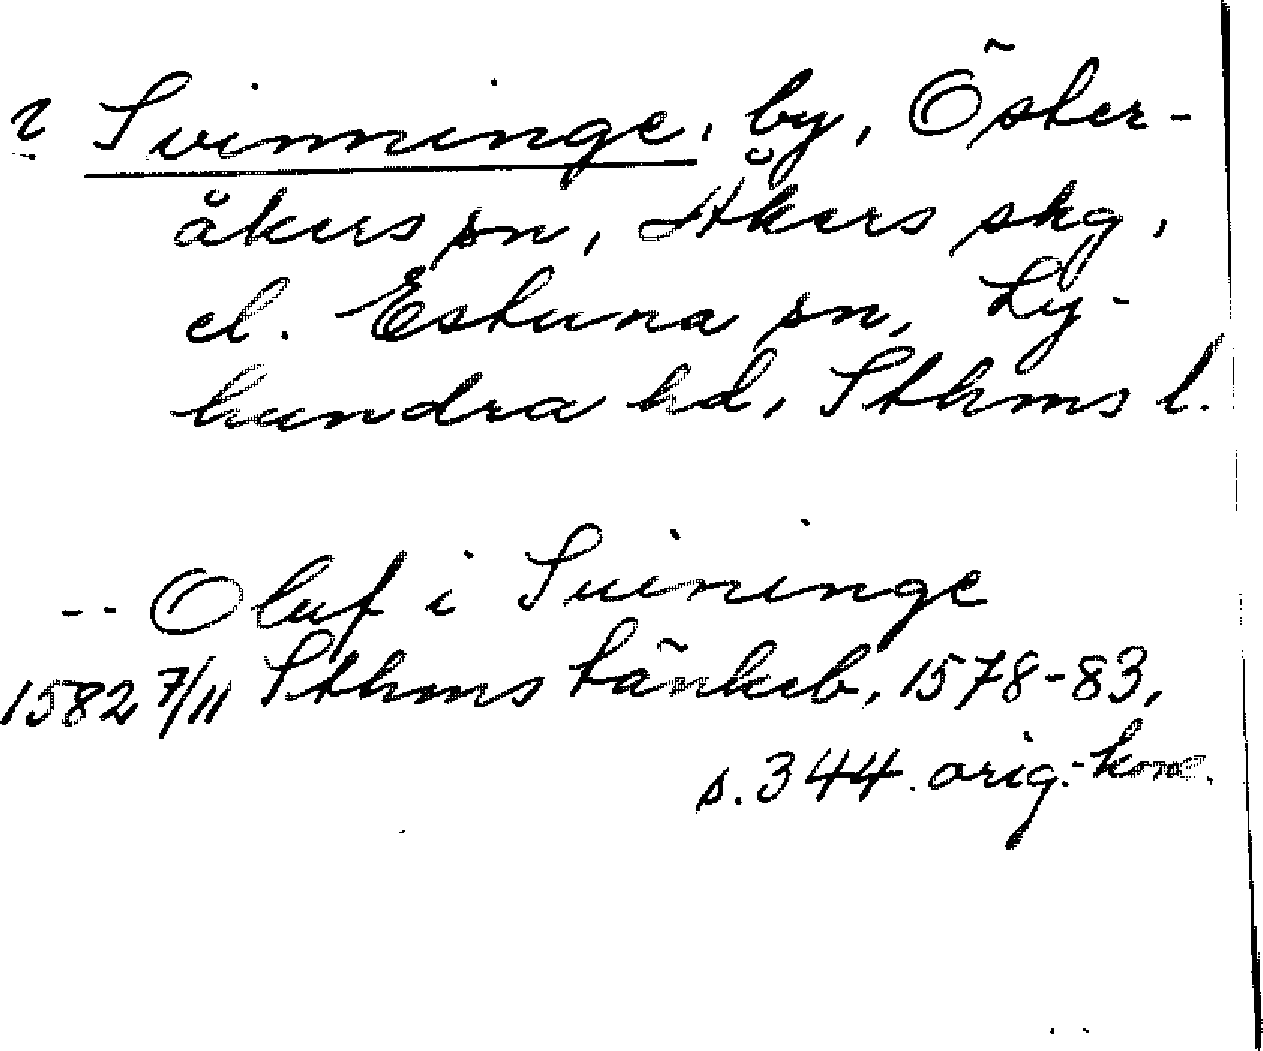 ? Svinninge, by, Öster-
åkers sn, Åkers skg,
el. Estuna sn, Ly-
hundra hd, Sthms l.
-- Oluf i Suininge
1582 7/11 Sthms tänkeb. 1578-83,
s. 344. orig.-